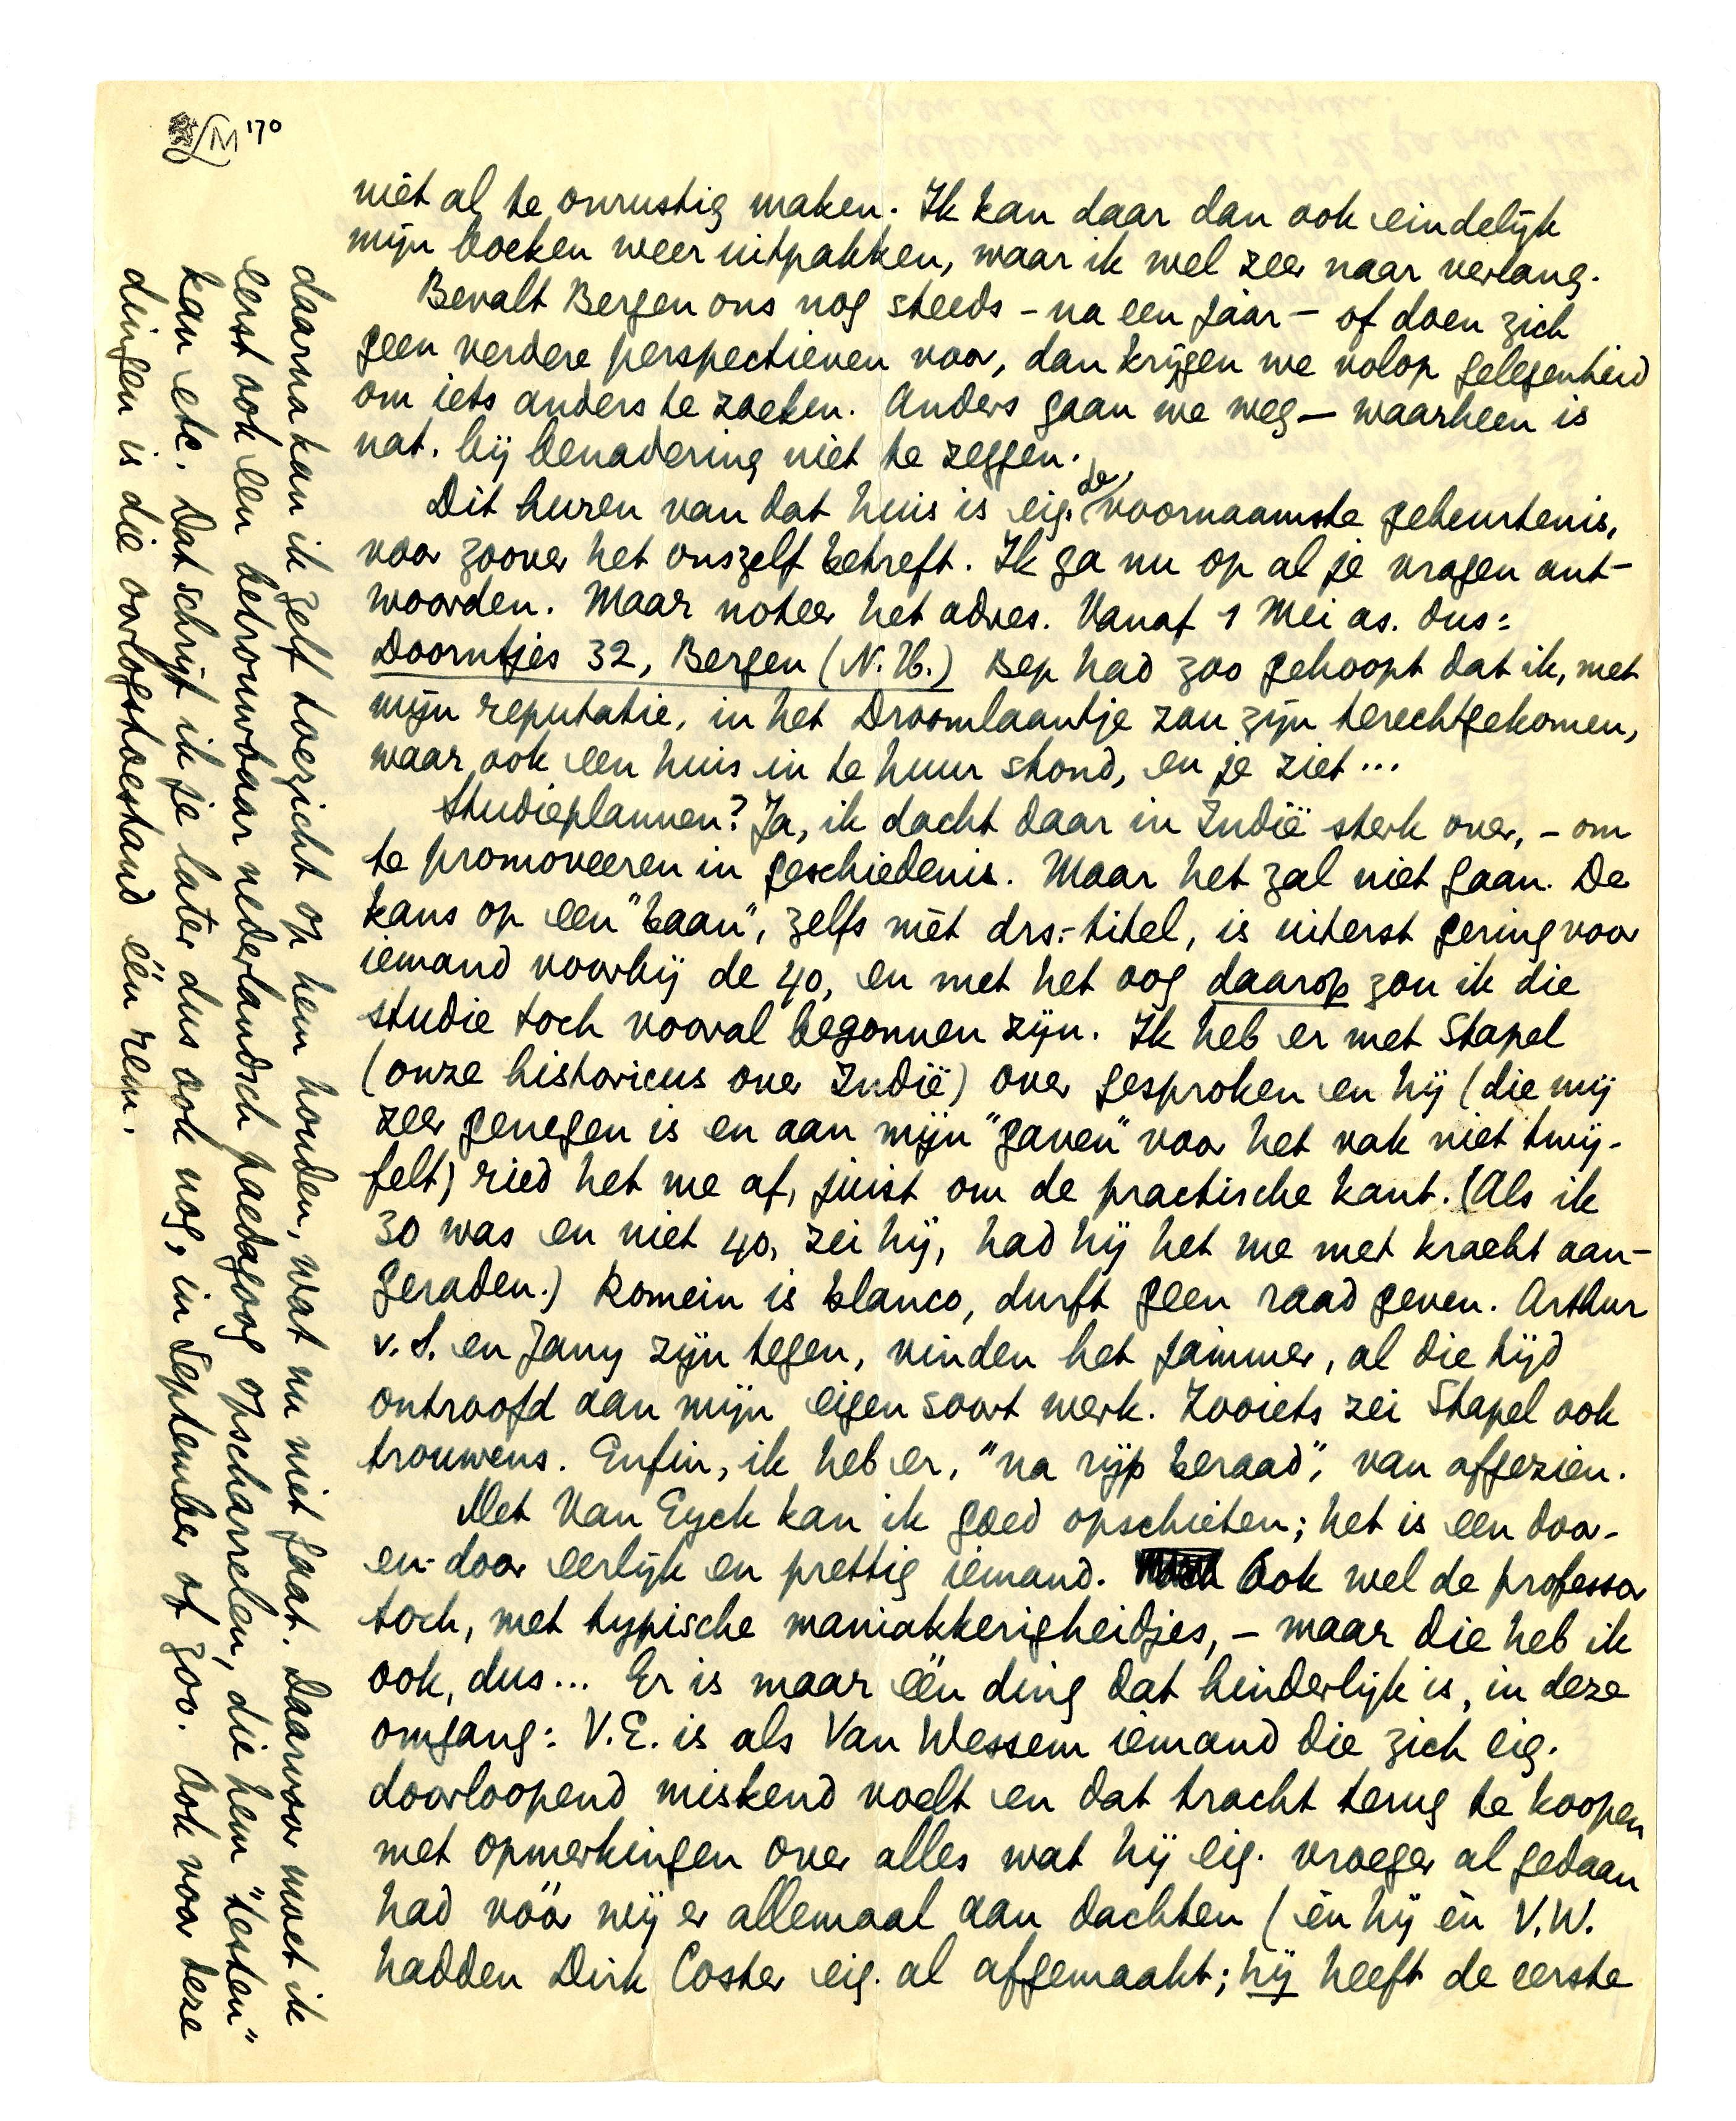 LM '70
niet al te onrustig maken. Ik kan daar dan ook eindelijk
mijn boeken weer uitpakken, waar ik wel zeer naar verlang.
Bevalt Bergen ons nog steeds – na een jaar – of doen zich
geen verdere perspectieven voor, dan krijgen we volop gelegenheid
om iets anders te zoeken. Anders gaan we weg – waarheen is
nat. bij benadering niet te zeggen.
Dit huren van dat huis is eig. de voornaamste gebeurtenis,
voor zoover het onszelf betreft. Ik ga nu op al je vragen ant-
woorden. Maar noteer het adres. Vanaf 1 Mei as. dus:
Doorntjes 32, Bergen (N.H.) Bep had zoo gehoopt dat ik, met
mijn reputatie, in het Droomlaantje zou zijn terechtgekomen,
waar ook een huis in te huur stond, en je ziet...
Studieplannen? Ja, ik dacht daar in Indië sterk over, – om
te promoveeren in geschiedenis. Maar het zal niet gaan. De
kans op een "baan", zelfs mèt drs.-titel, is uiterst gering voor
iemand voorbij de 40, en met het oog daarop zou ik die
studie toch vooral begonnen zijn. Ik heb er met Stapel
(onze historicus over Indië) over gesproken en hij (die mij
zeer genegen is en aan mijn "gaven" voor het vak niet twij-
felt) ried het me af, juist om de practische kant. (Als ik
30 was en niet 40, zei hij, had hij het me met kracht aan-
geraden.) Romein is blanco, durft geen raad geven. Arthur
v. S. en Jany zijn tegen, vinden het jammer, al die tijd
ontroofd aan mijn eigen soort werk. Zooiets zei Stapel ook
trouwens. Enfin, ik heb er, "na rijp beraad", van afgezien.
Met Van Eyck kan ik goed opschieten; het is een door-
en-door eerlijk en prettig iemand. Ook wel de professor
toch, met typische maniakkerigheidjes, – maar die heb ik
ook, dus... Er is maar één ding dat hinderlijk is, in deze
omgang: V.E. is als Van Wessem iemand die zich eig.
doorloopend miskend voelt en dat tracht terug te koopen
met opmerkingen over alles wat hij eig. vroeger al gedaan
had vóór wij er allemaal aan dachten (èn hij èn V.W.
hadden Dirk Coster eig. al afgemaakt; hij heeft de eerste
daarna kan ik zelf toezicht op hem houden, wat nu niet gaat. Daarvoor moet ik
eerst ook een betrouwbaar nederlandsch paedagoog opscharrelen, die hem "testen"
kan etc. Dat schrijf ik je later dus ook nog, in September of zoo. Ook voor deze
dingen is die oorlogstoestand één rem.